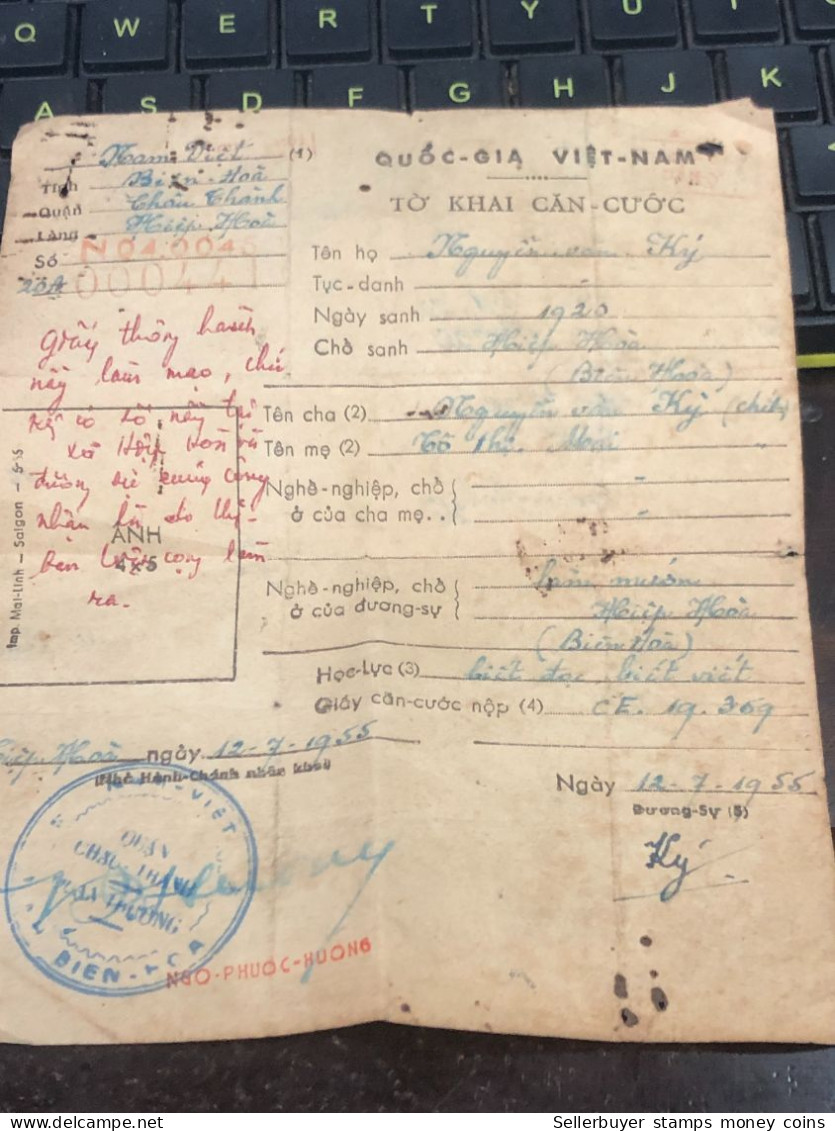 Q W E R T Y U I
A S D F G H J K
Nam Việt (1)
Tỉnh Biên-Hoà
Quận Châu Thành
Làng Hiệp Hoà
Số N04.004
20A 000441
QUỐC-GIA VIỆT-NAM
TỜ KHAI CĂN-CƯỚC
Tên họ Nguyễn văn Ký
Tục-danh -
Ngày sanh 1920
Chỗ sanh Hiệp Hoà
(Biên Hoà)
Tên cha (2) Nguyễn văn Kỷ (chết)
Tên mẹ (2) Tô thị "
Nghề-nghiệp, chỗ "
ở của cha mẹ.. "
Nghề-nghiệp, chỗ làm mướn
ở của đương-sự Hiệp Hoà
(Biên Hoà)
Học-Lực (3) biết đọc, biết viết
Giấy căn-cước nộp (4) CE. 19.369
Giấy thông hành
này làm mạo, chứ
có số này tại
xã Hiệp Hoà và
đương sự cũng công
nhận do
làm
ra.
ẢNH
4x5
Imp. Mai-Linh — Saigon —
Hiệp Hoà ngày 12-7-1955
Ngày 12-7-1955
Đương-Sự (5)
Ký
VIỆT
QUẬN
CHÂU-THÀNH
BIEN-HOA
NGÔ-PHƯỚC-HƯỜNG
Sellerbuyer stamps money coins